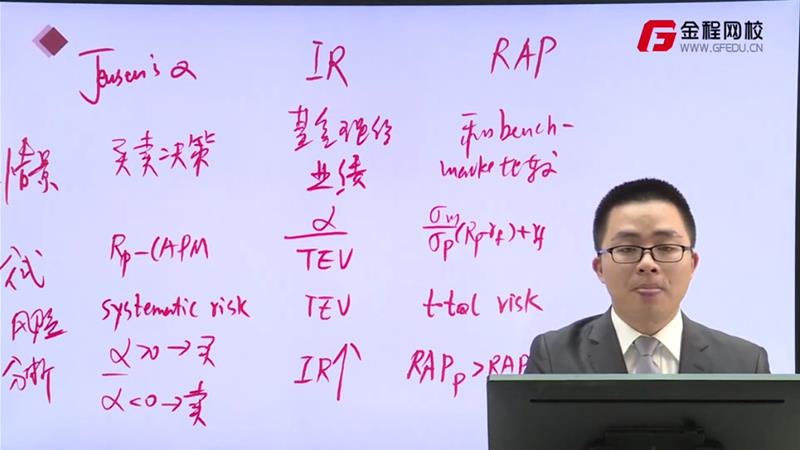 金程网校
WWW.GFEDU.CN
Jensen's α IR RAP
情景 买卖决策 基金经理的业绩 和benchmarke比较
公式 Rp-CAPM α/TEV σM/σp(Rp-rf)+rf
风险 systematic risk TEV total risk
分析 α>0→买 IR↑ RAPp>RAP
α<0→卖